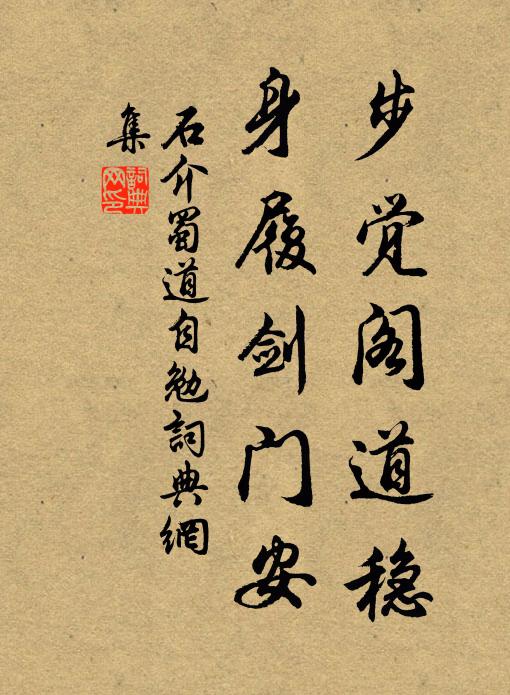 步觉阁道稳
身履剑门安
石介蜀道自勉詞典網
集
詞典
网印